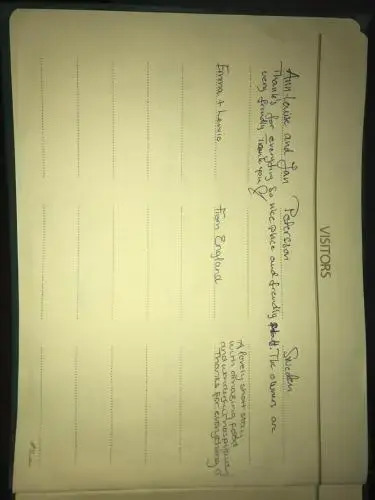 VISITORS
Ann-Louise and Jan Petersson Sweden
Thanks for everything So nice place and friendly staff. The owners are
very friendly Thank you
Emma + Lewis From England
A lovely short stay
with amazing food
and wonderful hospitality
Thanks for everything